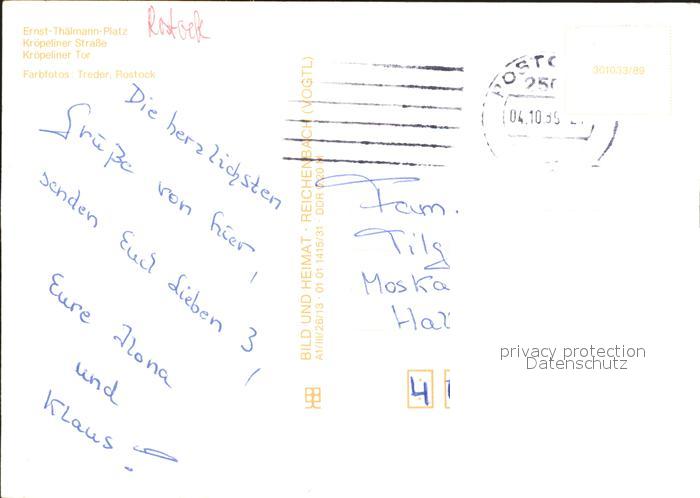 Ernst-Thälmann-Platz
Kröpeliner Straße
Kröpeliner Tor
Farbfotos: Treder, Rostock
Rostock
Die herzlichsten
Grüße von hier,
senden Euch lieben 3!
Eure Ilona
und
Klaus.
BILD UND HEIMAT · REICHENBACH (VOGTL)
A1/III/26/13 · 01 01 1415/31 · DDR
ROSTO
25
04.10.89
301033/89
Fam.
Tilg
Moska
Hal
4
privacy protection
Datenschutz